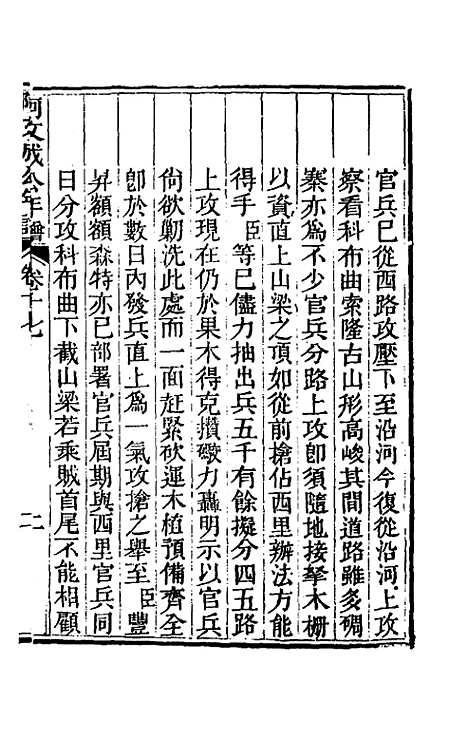 官兵已從西路攻壓下至沿河今復從沿河上攻
察看科布曲索隆古山形高峻其間道路雖多碉
寨亦為不少官兵分路上攻卽須隨地接拏木柵
以資直上山梁之頂如從前搶佔西里辦法方能
得手臣等已儘力抽出兵五千有餘擬分四五路
上攻現在仍於果木得克攢礮力轟明示以官兵
尙欲剿洗此處而一面赶緊砍運木植預備齊全
卽於數日內發兵直上為一氣攻搶之舉至臣豐
昇額額森特亦已部署官兵屆期與西里官兵同
日分攻科布曲下截山梁若乘賊首尾不能相顧
阿文成公年譜 卷十七 二